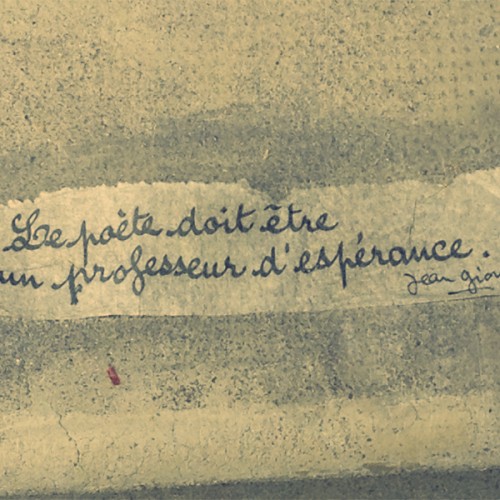 Le poète doit être
un professeur d'espérance.
Jean Giono